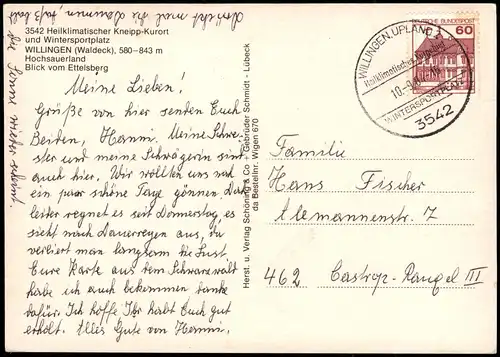 3542 Heilklimatischer Kneipp-Kurort
und Wintersportplatz
WILLINGEN (Waldeck), 580–843 m
Hochsauerland
Blick vom Ettelsberg
Meine Lieben!
Grüße von hier senden Euch
Beiden, Hanni. Meine Schwe-
ster und meine Schwägerin sind
auch hier. Wir wollten uns noch
ein paar schöne Tage gönnen. Da
leider regnet es seit Donnerstag, es
sieht nach Dauerregen aus, da
verliert man langsam die Lust.
Eure Karte aus dem Schwarzwald
habe ich auch bekommen, danke
dafür. Ich hoffe Ihr habt Euch gut
erholt. Alles Gute von Hanni.
Drückt mal die Daumen, daß bald
die Sonne wieder scheint.
Herst. u. Verlag Schöning & Co · Gebrüder Schmidt - Lübeck
da Bestellnr. Wigen 670
DEUTSCHE BUNDESPOST
60
WILLINGEN, UPLAND 1
Heilklimatischer
WINTERSPORTPLATZ
3542
Familie
Hans Fischer
Alemannenstr. 7
462 Castrop-Rauxel III